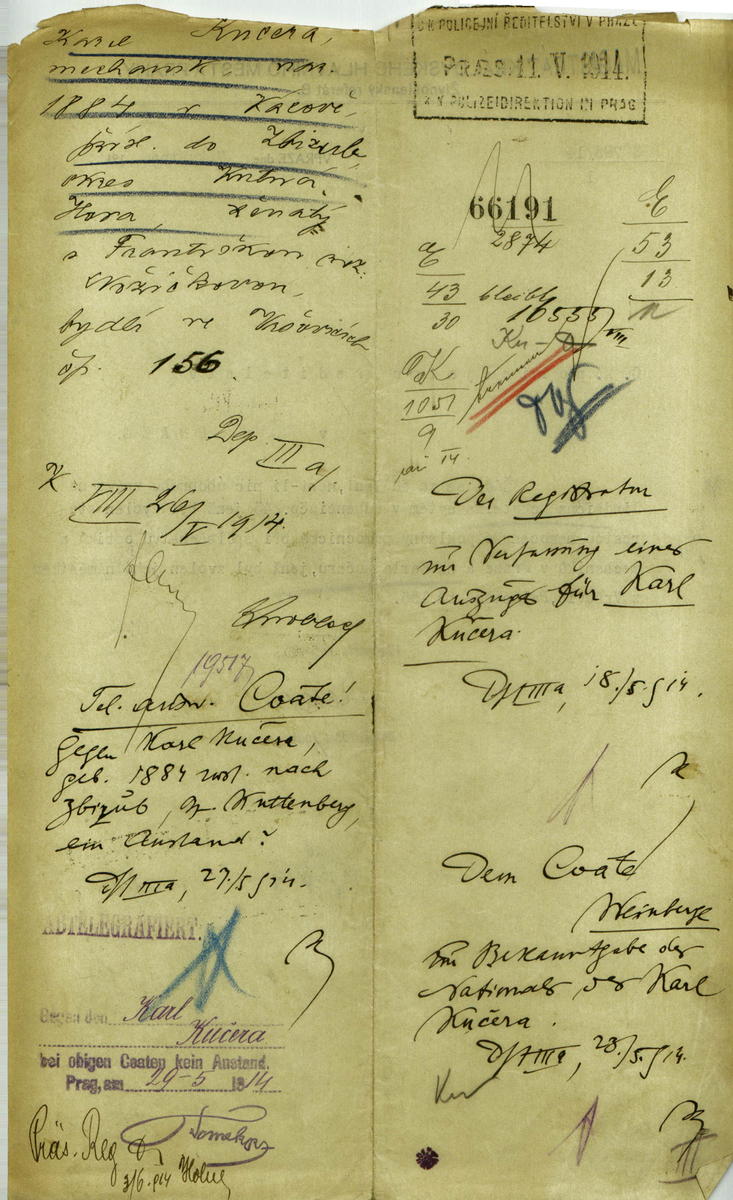 Karel Kučera,
mechanik nar.
1884 v Kácově,
přísl. do Zbizub,
okres Kutná
Hora, ženatý
s Františkou roz.
Nožičkovou,
bydlí ve Kovářích
čp. 156.
Dep. III a/
K
VIII 26/V 1914.
19517
Tel. Coate!
gegen Karl Kučera,
geb. 1884 zust. nach
Zbizub, Kuttenberg,
ein Anstand?
IIIa, 27./5 914.
ABTELEGRAFIERT.
Gegen den Karl
Kučera
bei obigen Coaten kein Anstand.
Prag, am 29-5 1914
Präs. Reg
3/6. 914
K.K POLICEJNÍ ŘEDITELSTVÍ V PRAZE
PRÆS. 11. V. 1914.
K.K POLIZEIDIREKTION IN PRAG
66191
2874
E
53
13
E
43
30
bleibt
16555
VIII
1051
9
14.
Der Registratur
zur Verfassung eines
Auszuges für Karl
Kučera.
IIIa, 18./5. 914.
Dem Coate
Weinberge
zur Bekanntgabe der
Nationale des Karl
Kučera.
IIIa, 23./5. 914.
III